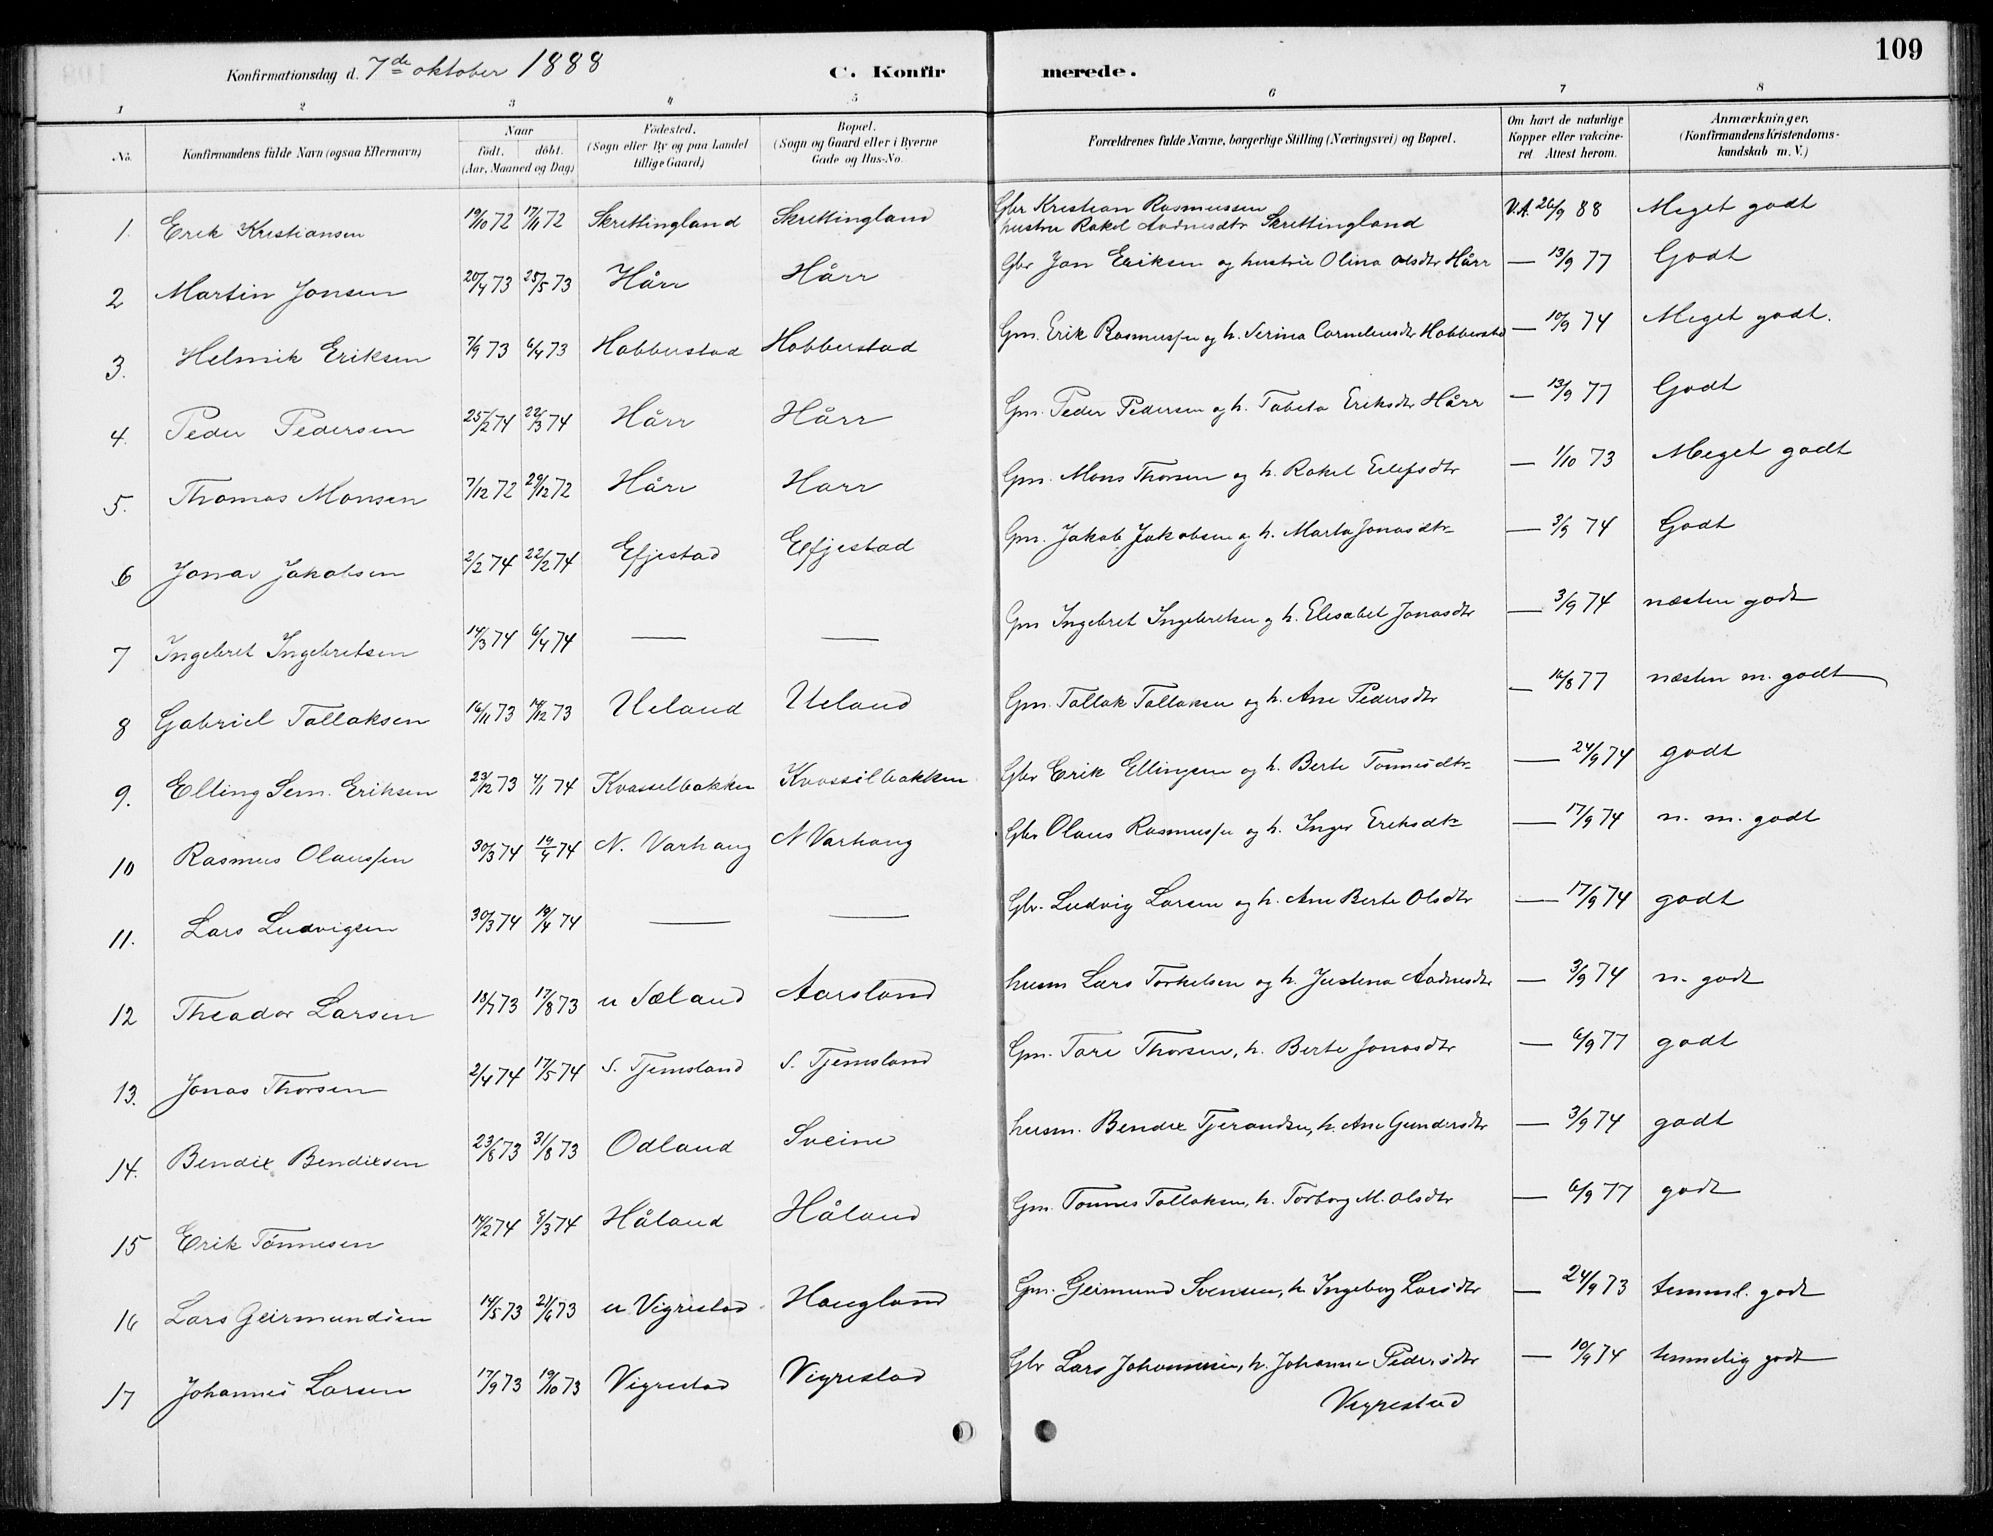 109
Konfirmationsdag d. 7de oktober 1888 C. Konfirmerede.
1 2 3 4 5 6 7 8
No. Konfirmandens fulde Navn (ogsaa Efternavn) Naar født. døbt. (Aar, Maaned og Dag) Fødested. (Sogn eller By og paa Landet tillige Gaard) Bopæl. (Sogn og Gaard eller i Byerne Gade og Hus-No. Forældrenes fulde Navne, borgerlige Stilling (Næringsvei) og Bopæl. Om havt de naturlige Kopper eller vakcineret Attest herom. Anmærkninger. (Konfirmandens Kristendomskundskab m. V.)
1. Erik Kristiansen 19/10 72 17/11 72 Skrettingland Skrettingland Gbr Kristian Rasmussen hustru Rakel Aadnesdtr Skrettingland V.A. 26/9 88 Meget godt
2 Martin Jonsen 20/4 73 25/5 73 Hårr Hårr Gbr Jon Eriksen og hustru Olina Olsdtr Hårr — 13/9 77 Godt
3. Helmik Eriksen 7/9 73 6/4 73 Hobberstad Hobberstad Gm. Erik Rasmussen og h. Serina Corneliusdtr Hobberstad — 10/9 74 Meget godt.
4. Peder Pedersen 25/2 74 22/3 74 Hårr Hårr Gm. Peder Pedersen og h. Tabeta Eriksdtr Hårr — 13/9 77 Godt
5. Thomas Monsen 7/12 72 29/12 72 Hårr Harr Gm. Mons Thorsen og h. Rakel Eilefsdtr — 1/10 73 Meget godt
6 Jonas Jakobsen 2/2 74 22/2 74 Efjestad Efjestad Gm. Jakob Jakobsen og h. Marta Jonasdtr — 3/9 74 Godt
7 Ingebret Ingebretsen 14/3 74 6/4 74 — — Gm Ingebret Ingebretsen og h. Elisabet Jonasdtr — 3/9 74 næsten godt
8 Gabriel Tollaksen 16/11 73 14/12 73 Ueland Ueland Gm. Tollak Tollaksen og h. Ane Pedersdtr — 16/8 77 næsten m. godt
9. Elling Sem. Eriksen 23/12 73 4/1 74 Kvasselbakken Kvassilbakken Gbr Erik Ellingsen og h. Berte Tonnesdtr — 24/9 74 godt
10 Rasmus Olaussen 30/3 74 19/4 74 N. Varhaug N Varhaug Gbr Olaus Rasmussen og h. Inger Eriksdtr — 17/9 74 n. m. godt
11. Lars Ludvigsen 30/3 74 19/4 74 — — Gbr. Ludvig Larsen og h. Ane Berte Olsdtr — 17/9 74 godt
12 Theodor Larsen 18/7 73 17/8 73 u Sæland Aarsland husm Lars Torkelsen og h. Justina Aadnesdtr — 3/9 74 n. godt
13. Jonas Thorsen 2/4 74 17/5 74 S. Tjemsland S. Tjemsland Gm. Tore Thorsen, h. Berte Jonasdtr — 6/9 77 godt
14. Bendix Bendixsen 23/8 73 31/8 73 Odland Sveine husm. Bendix Tjerandsen, h. Ane Gundersdtr — 3/9 74 godt
15 Erik Tönnesen 14/2 74 8/3 74 Håland Håland Gm. Tonnes Tollaksen, h. Torborg M. Olsdtr — 6/9 77 godt
16 Lars Geirmundsen 14/5 73 21/6 73 u Vigrestad Haugland Gm. Geirmund Svensen, h. Ingeborg Larsdtr — 24/9 73 temml. godt
17 Johannes Larsen 17/9 73 19/10 73 Vigrestad Vigrestad Gbr Lars Johannesen, h. Johanne Pedersdtr — 10/9 74 temmelig godt
Vigrestad